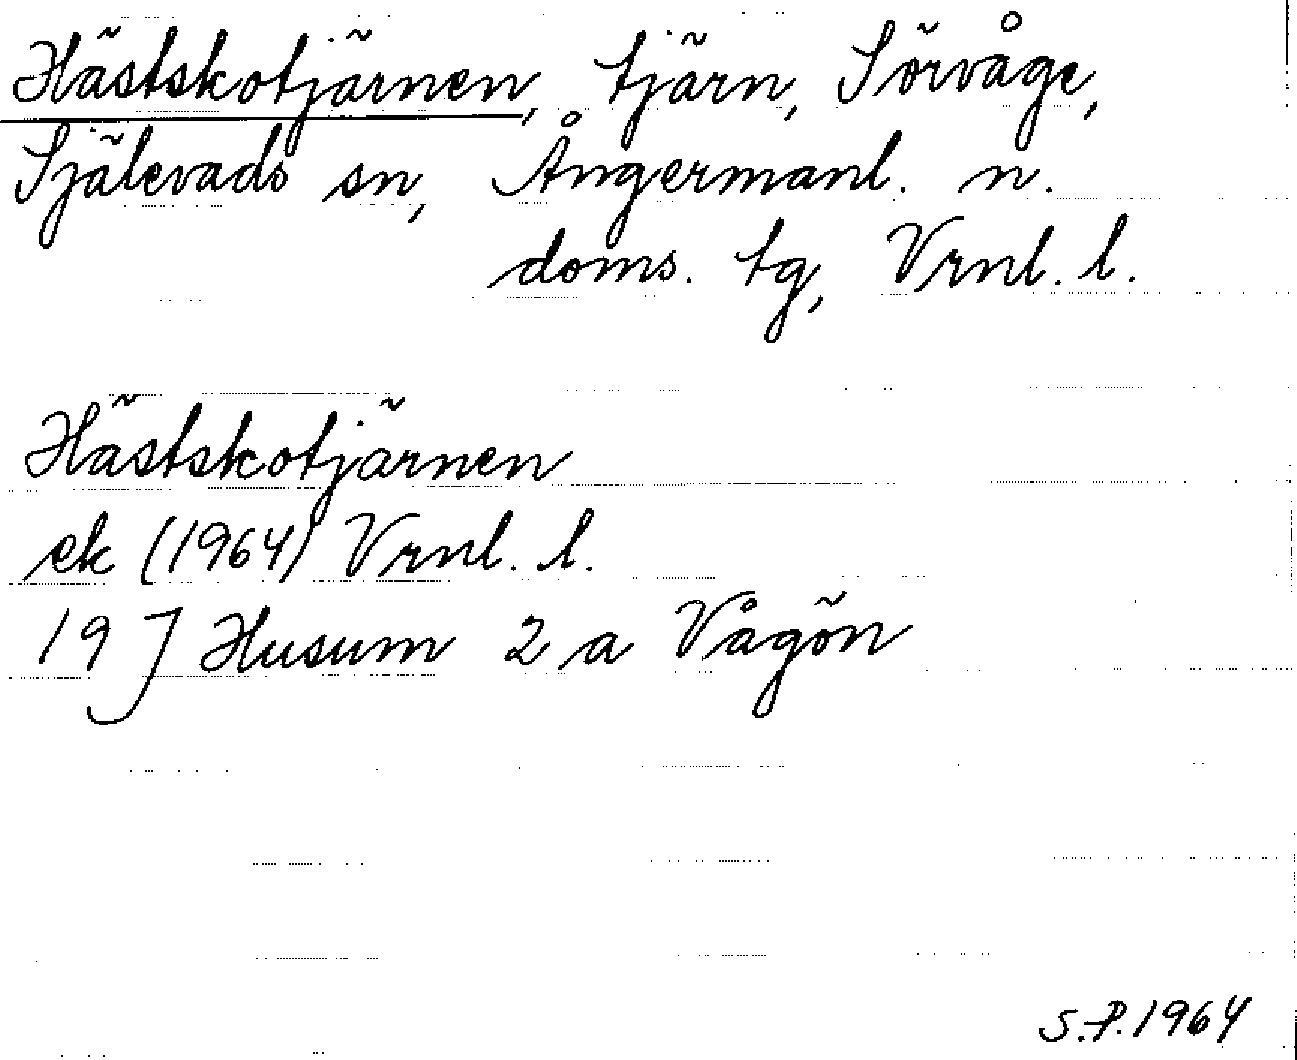 Hästskotjärnen, tjärn, Sörvåge,
Själevads sn, Ångermanl. n.
doms. tg, Vrnl. l.
Hästskotjärnen
ek (1964) Vrnl. l.
19 J Husum 2 a Vågön
S.P. 1964